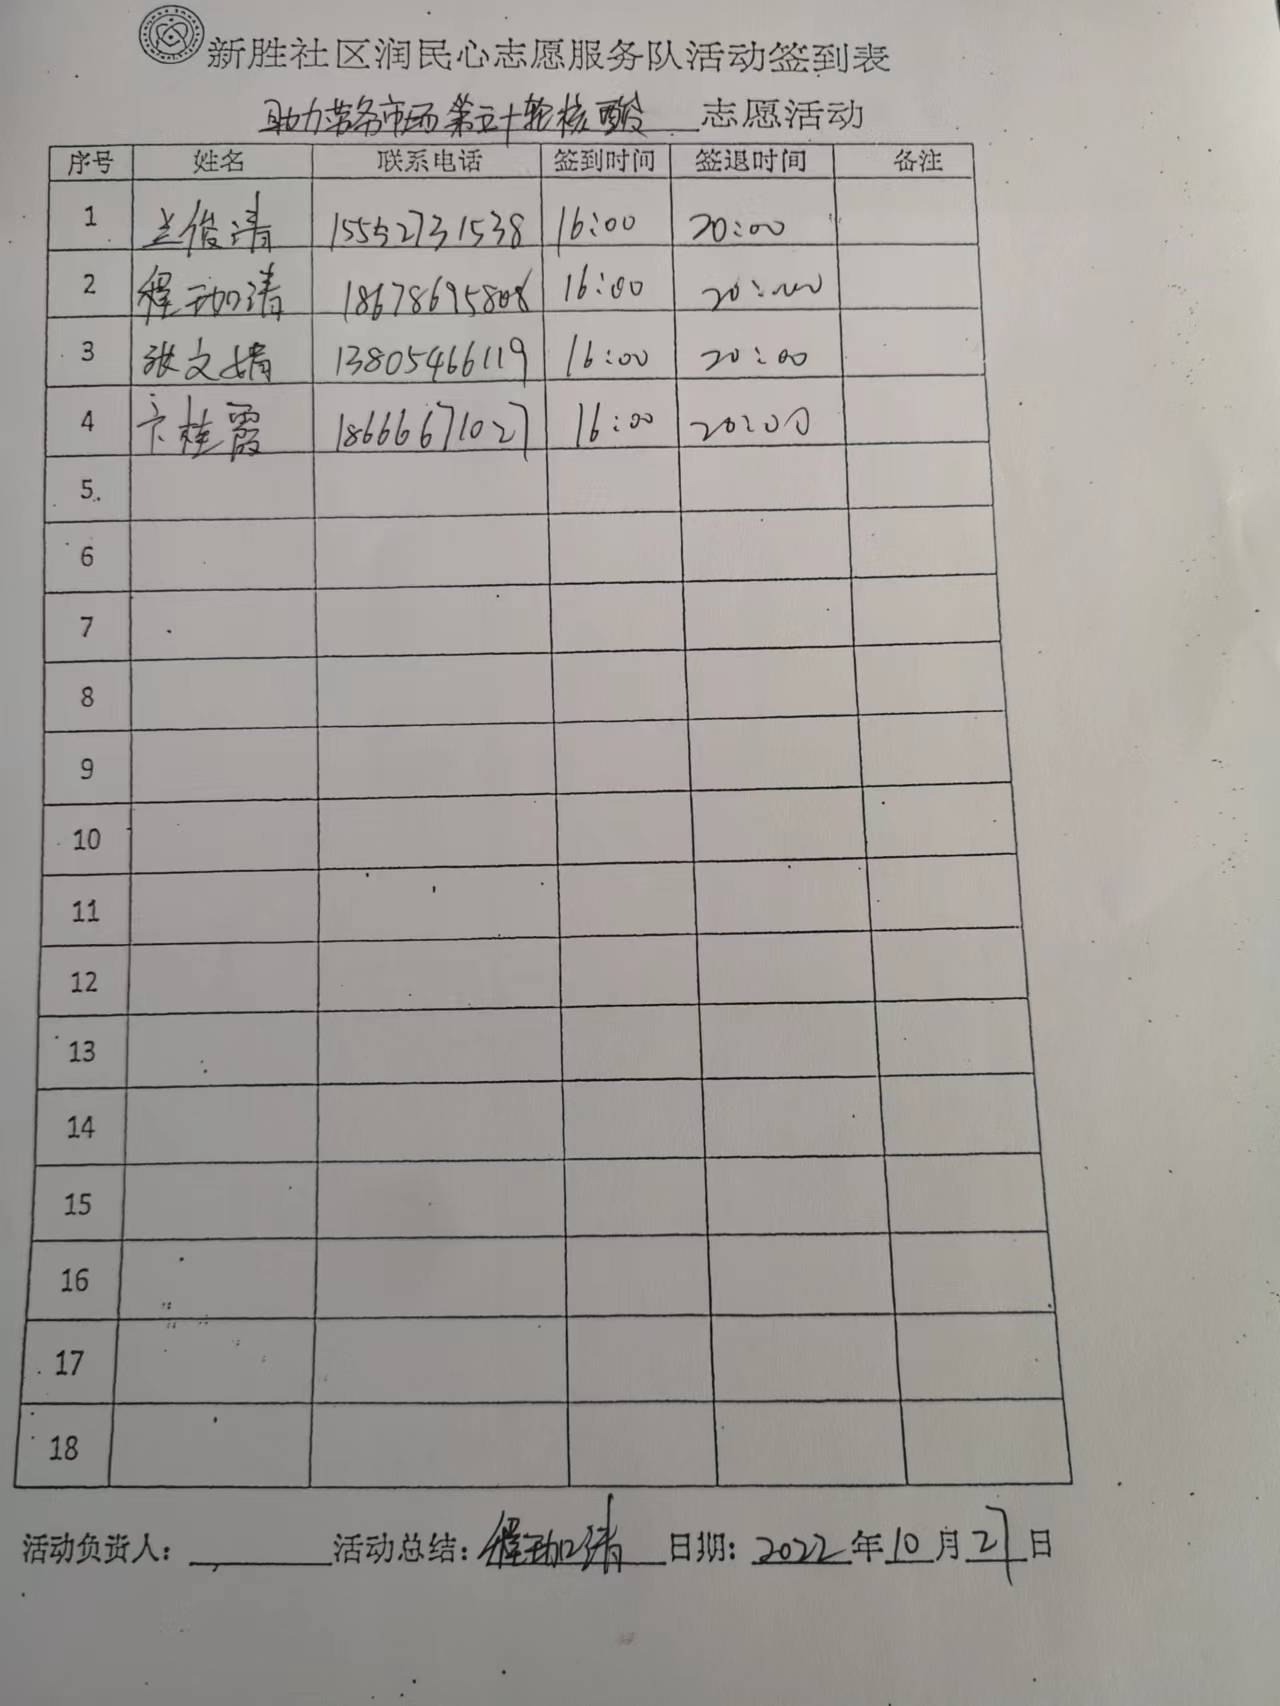 新胜社区润民心志愿服务队活动签到表
助力劳务市场第五十轮核酸 志愿活动
序号 姓名 联系电话 签到时间 签退时间 备注
1 兰俊清 15552731538 16:00 20:00
2 程动清 18678695808 16:00 20:00
3 张文婧 13805466119 16:00 20:00
4 卞桂霞 18666671027 16:00 20:00
5
6
7
8
9
10
11
12
13
14
15
16
17
18
活动负责人: 活动总结: 程动清 日期: 2022 年 10 月 27 日